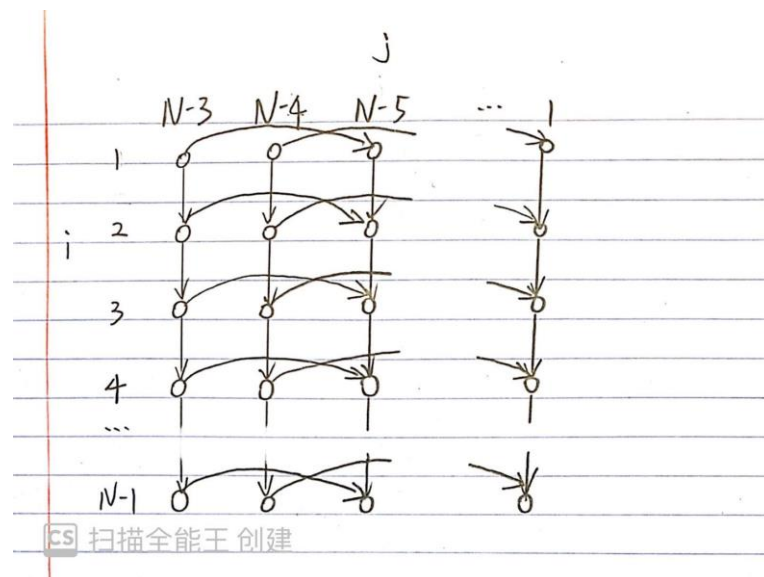 j
N-3 N-4 N-5 ... 1
1
2
i
3
4
...
N-1
CS 扫描全能王 创建